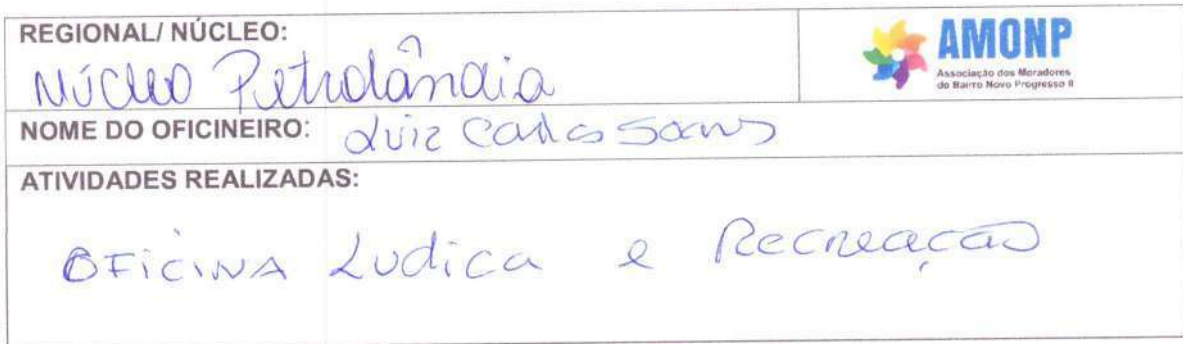 REGIONAL/ NÚCLEO:
Núcleo Petrolândia
AMONP
Associação dos Moradores
do Bairro Novo Progresso II
NOME DO OFICINEIRO: Luiz Carlos Soares
ATIVIDADES REALIZADAS:
OFICINA Ludica e Recreação